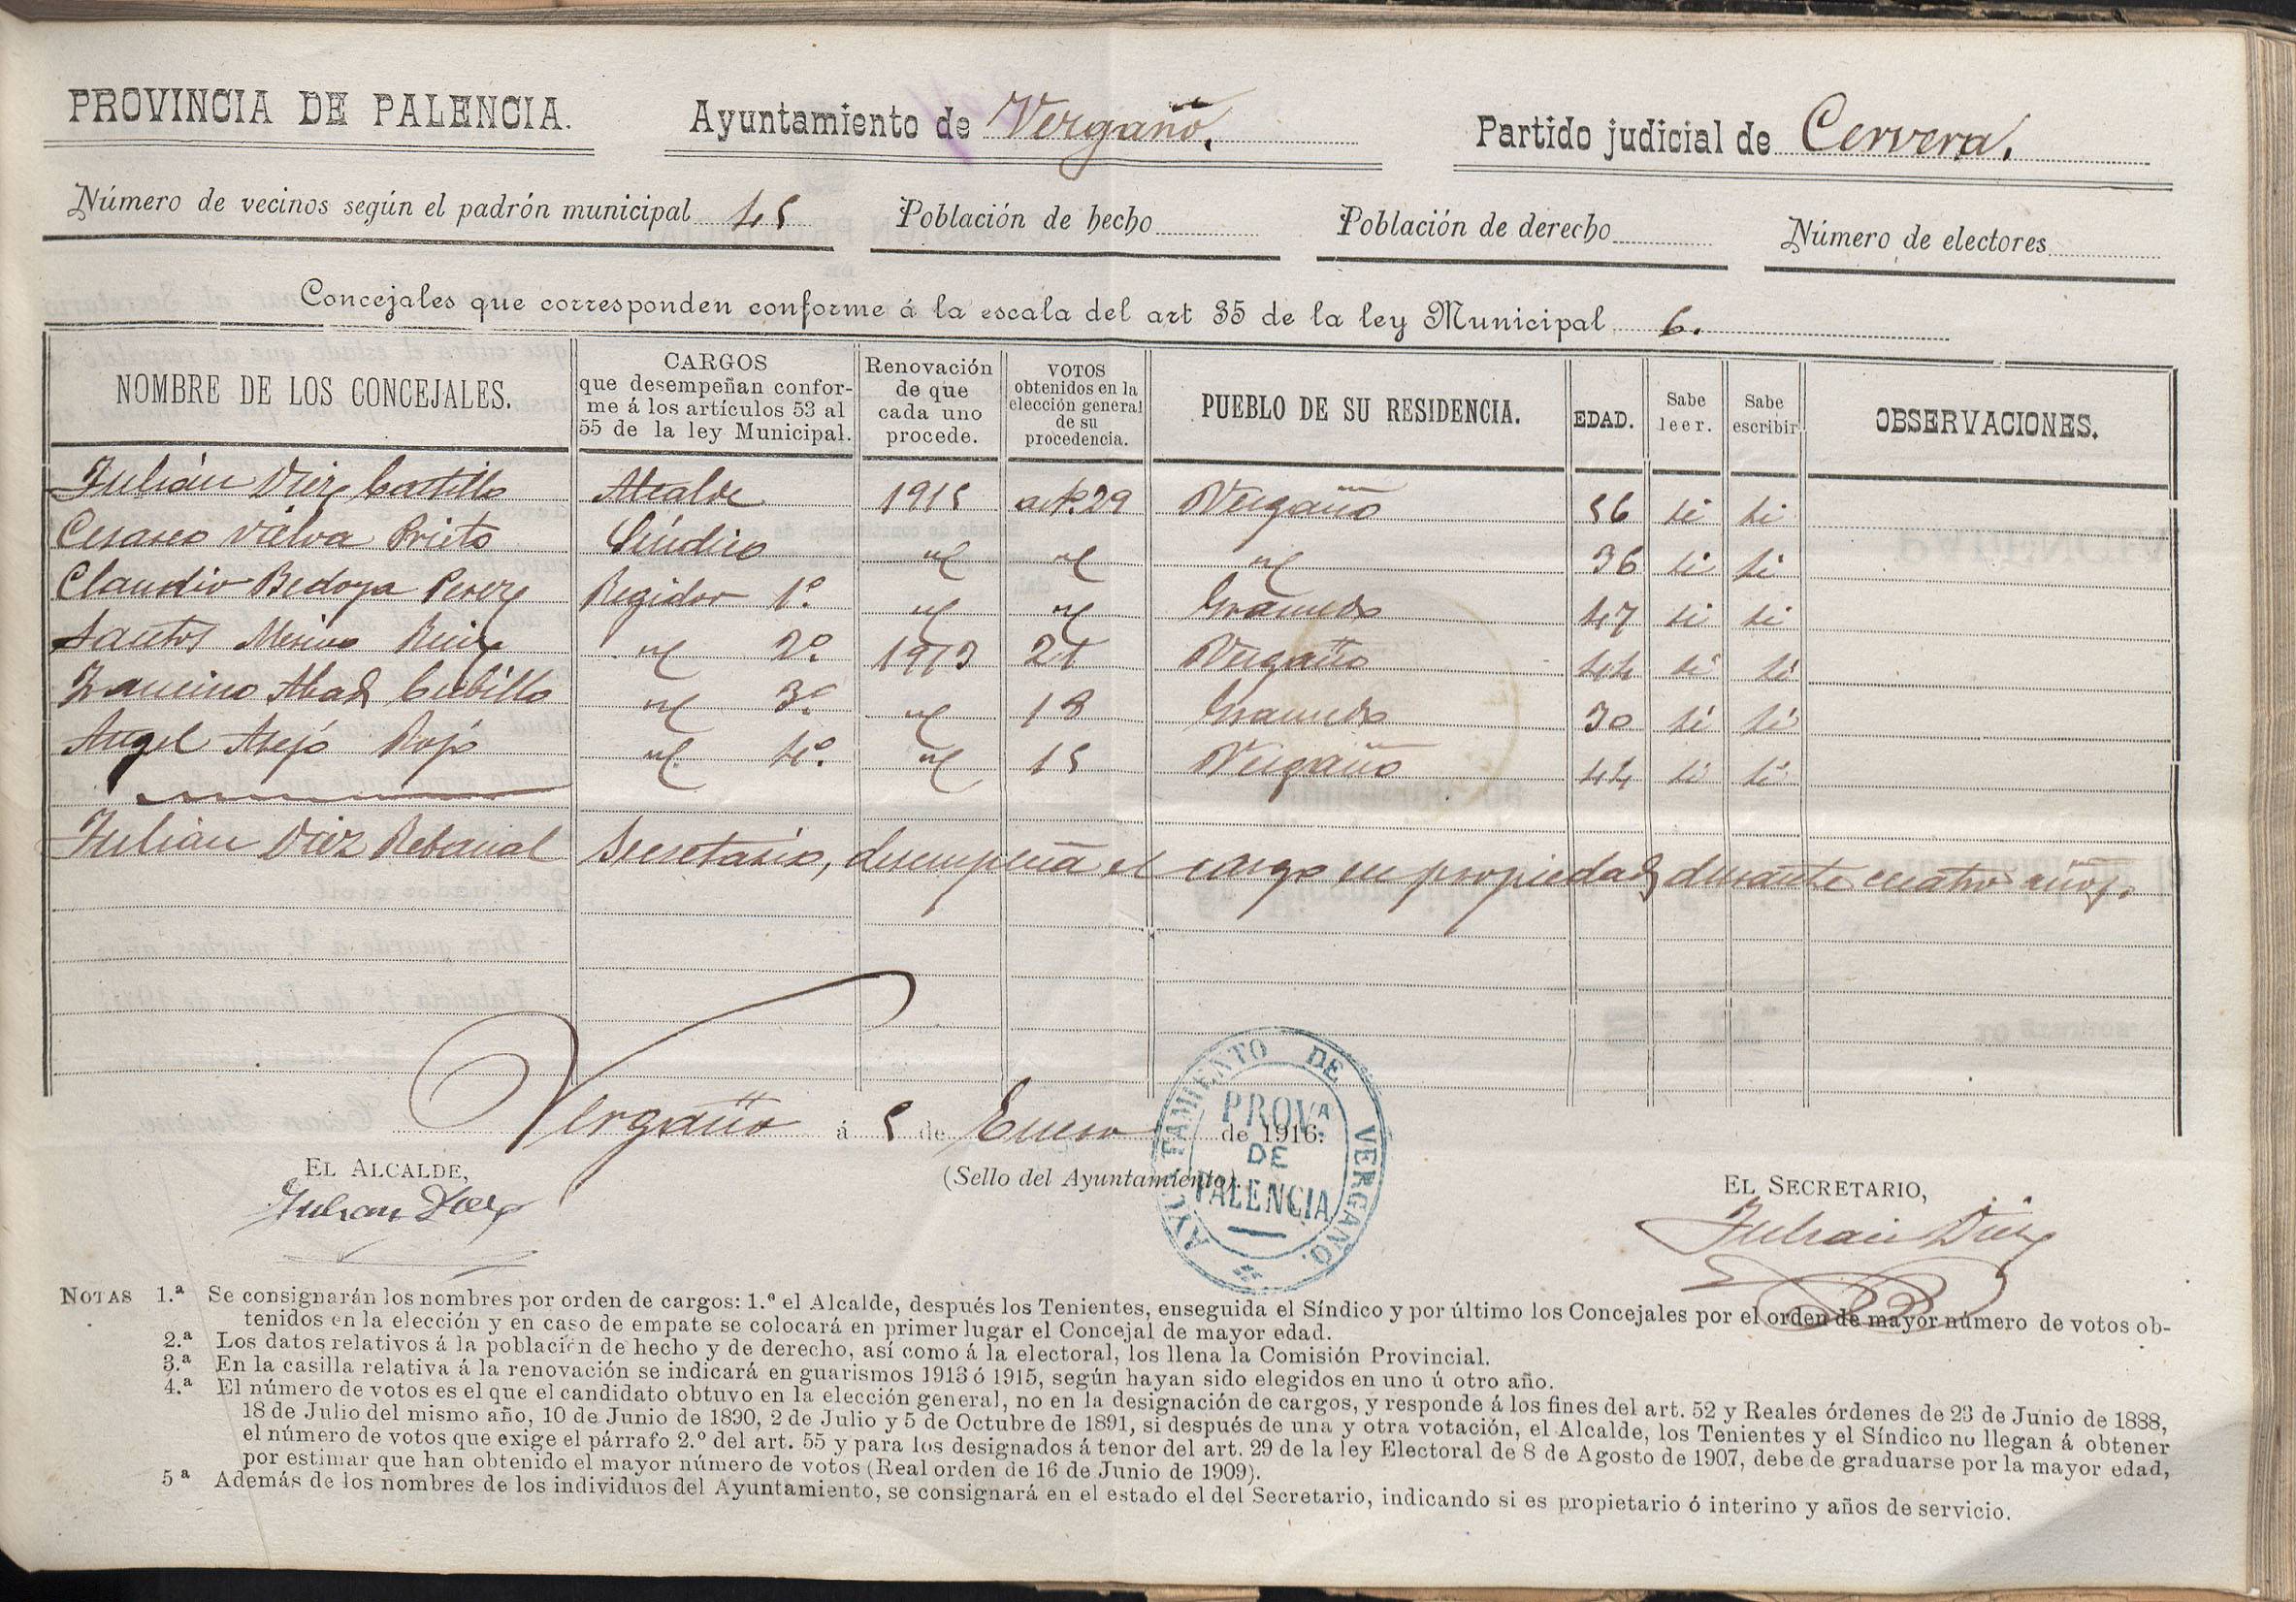 PROVINCIA DE PALENCIA. Ayuntamiento de Vergaño. Partido judicial de Cervera.
Número de vecinos según el padrón municipal 45 Población de hecho Población de derecho Número de electores
Concejales que corresponden conforme á la escala del art 35 de la ley Municipal 6.
NOMBRE DE LOS CONCEJALES. CARGOS que desempeñan conforme á los artículos 53 al 55 de la ley Municipal. Renovación de que cada uno procede. VOTOS obtenidos en la elección general de su procedencia. PUEBLO DE SU RESIDENCIA. EDAD. Sabe leer. Sabe escribir OBSERVACIONES.
Julián Diez Castillo Alcalde 1915 artº. 29 Vergaño 56 si si
Cesareo Vielva Prieto Síndico 36 si si
Claudio Bedoya Perez Regidor 1º. Gramedo 47 si si
Santos Merino Ruiz 2º. 1913 21 Vergaño 44 si si
Abad Cubillo 3º. 18 Gramedo 30 si si
Angel Rojo 4º. 15 Vergaño 44 si si
Julian Diez Rebanal Secretario, desempeña el cargo en propiedad durante cuatro años.
Vergaño á 5 de Enero de 1916.
EL ALCALDE,
Julian Diez
(Sello del Ayuntamiento).
AYUNTAMIENTO DE VERGAÑO.
PROVA.
DE
PALENCIA
EL SECRETARIO,
Julian Diez
NOTAS 1.ª Se consignarán los nombres por orden de cargos: 1.º el Alcalde, después los Tenientes, enseguida el Síndico y por último los Concejales por el orden de mayor número de votos ob-
tenidos en la elección y en caso de empate se colocará en primer lugar el Concejal de mayor edad.
2.ª Los datos relativos á la población de hecho y de derecho, así como á la electoral, los llena la Comisión Provincial.
3.ª En la casilla relativa á la renovación se indicará en guarismos 1913 ó 1915, según hayan sido elegidos en uno ú otro año.
4.ª El número de votos es el que el candidato obtuvo en la elección general, no en la designación de cargos, y responde á los fines del art. 52 y Reales órdenes de 23 de Junio de 1888,
18 de Julio del mismo año, 10 de Junio de 1890, 2 de Julio y 5 de Octubre de 1891, si después de una y otra votación, el Alcalde, los Tenientes y el Síndico no llegan á obtener
el número de votos que exige el párrafo 2.º del art. 55 y para los designados á tenor del art. 29 de la ley Electoral de 8 de Agosto de 1907, debe de graduarse por la mayor edad,
por estimar que han obtenido el mayor número de votos (Real orden de 16 de Junio de 1909).
5ª Además de los nombres de los individuos del Ayuntamiento, se consignará en el estado el del Secretario, indicando si es propietario ó interino y años de servicio.